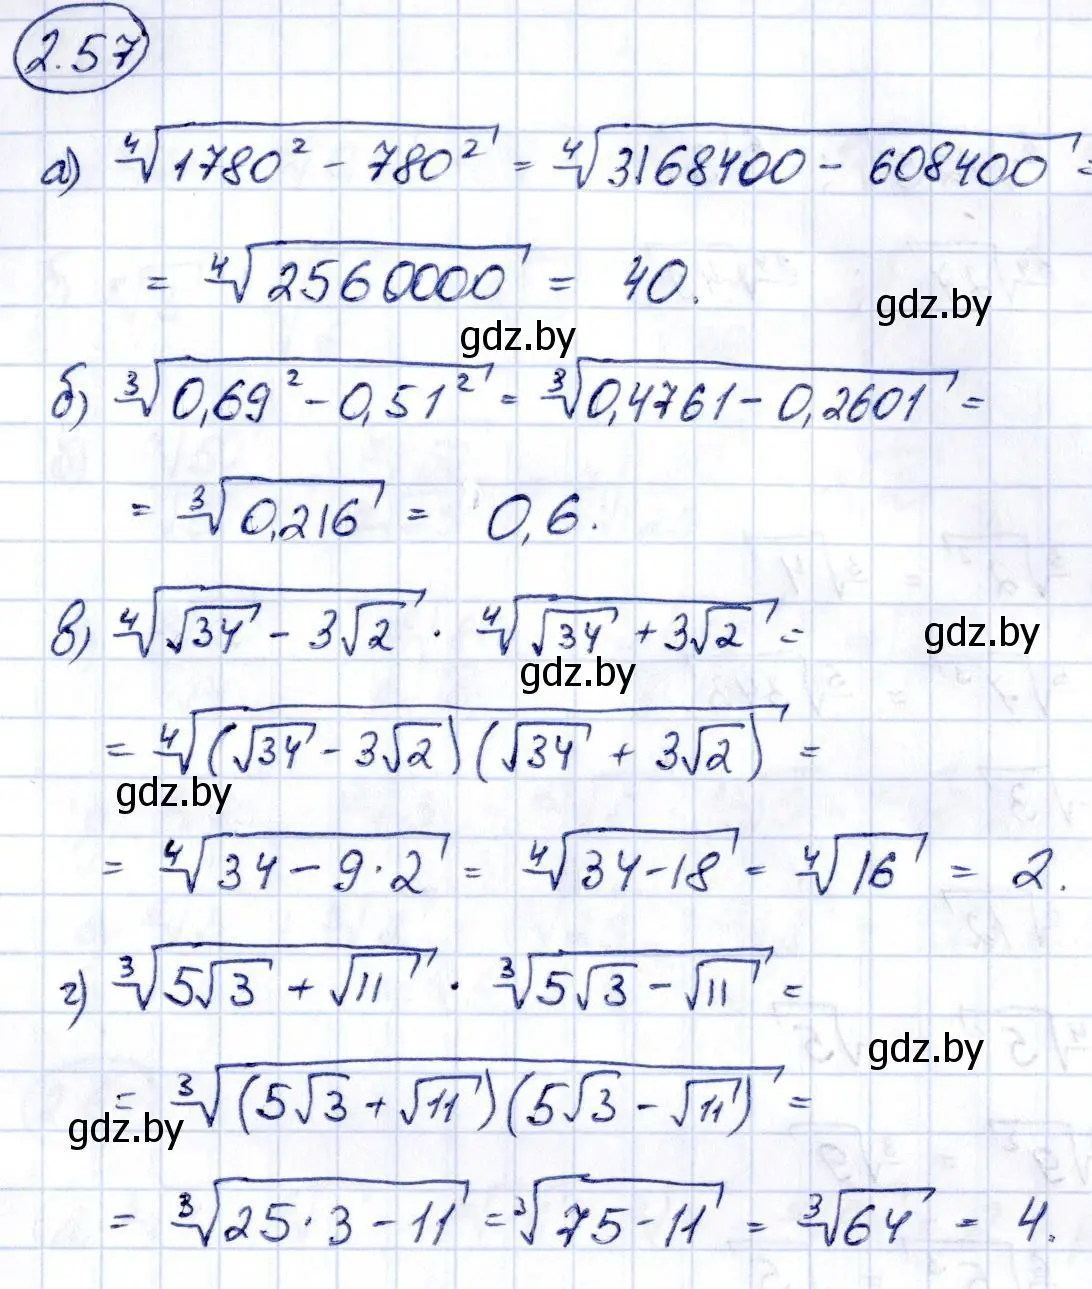 2.57
а) ⁴√(1780² − 780²) = ⁴√(3168400 − 608400) =
= ⁴√2560000 = 40.
gdz.by
gdz.by
б) ³√(0,69² − 0,51²) = ³√(0,4761 − 0,2601) =
= ³√0,216 = 0,6.
в) ⁴√(√34 − 3√2) · ⁴√(√34 + 3√2) =
gdz.by
gdz.by
= ⁴√((√34 − 3√2)(√34 + 3√2)) =
gdz.by
= ⁴√(34 − 9·2) = ⁴√(34 − 18) = ⁴√16 = 2.
г) ³√(5√3 + √11) · ³√(5√3 − √11) =
gdz.by
= ³√((5√3 + √11)(5√3 − √11)) =
gdz.by
= ³√(25·3 − 11) = ³√(75 − 11) = ³√64 = 4.